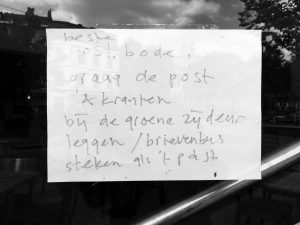 beste
post bode,
graag de post
& kranten
bij de groene zijdeur
leggen / brievenbus
steken als 't past